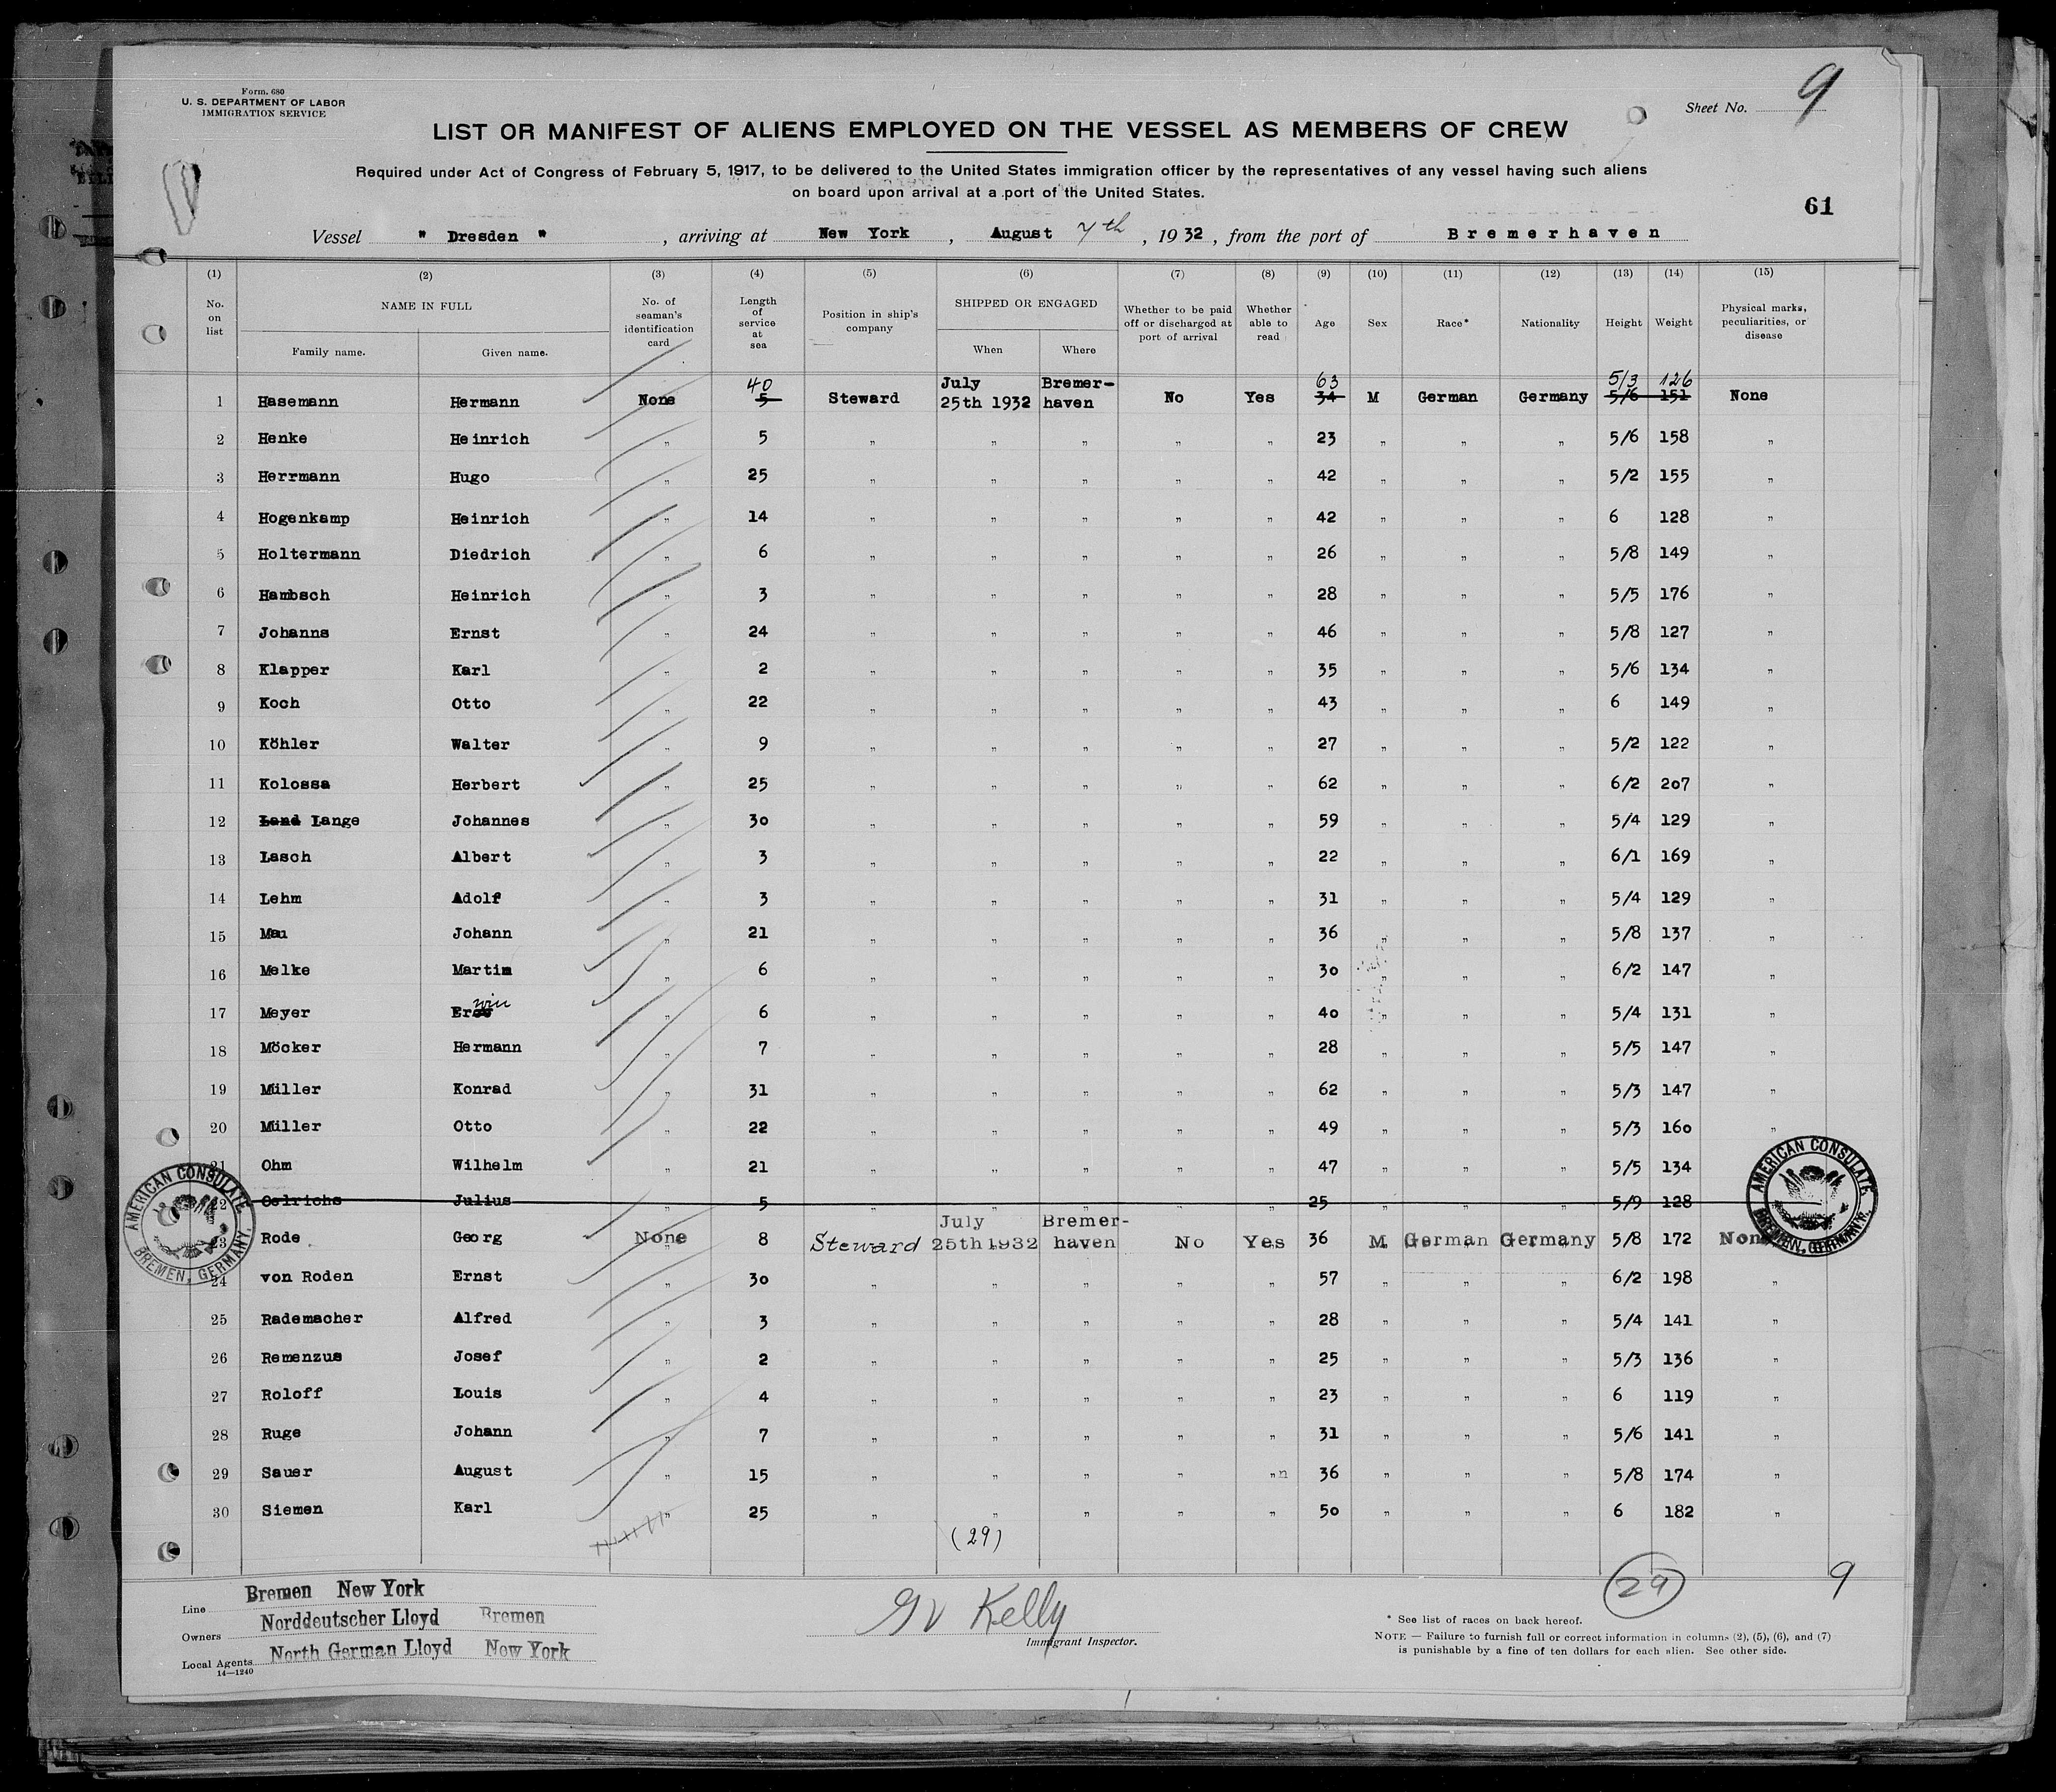 Form. 680
U. S. DEPARTMENT OF LABOR
IMMIGRATION SERVICE
Sheet No. 9
LIST OR MANIFEST OF ALIENS EMPLOYED ON THE VESSEL AS MEMBERS OF CREW
Required under Act of Congress of February 5, 1917, to be delivered to the United States immigration officer by the representatives of any vessel having such aliens
on board upon arrival at a port of the United States.
61
Vessel " Dresden " , arriving at New York , August 7th , 1932 , from the port of Bremerhaven
(1) (2) (3) (4) (5) (6) (7) (8) (9) (10) (11) (12) (13) (14) (15)
No. on list NAME IN FULL Family name. Given name. No. of seaman's identification card Length of service at sea Position in ship's company SHIPPED OR ENGAGED When Where Whether to be paid off or discharged at port of arrival Whether able to read Age Sex Race* Nationality Height Weight Physical marks, peculiarities, or disease
40 July Bremer- 63 5/3 126
1 Hasemann Hermann None 5 Steward 25th 1932 haven No Yes 34 M German Germany 5/6 151 None
2 Henke Heinrich " 5 " " " " " 23 " " " 5/6 158 "
3 Herrmann Hugo " 25 " " " " " 42 " " " 5/2 155 "
4 Hogenkamp Heinrich " 14 " " " " " 42 " " " 6 128 "
5 Holtermann Diedrich " 6 " " " " " 26 " " " 5/8 149 "
6 Hambsch Heinrich " 3 " " " " " 28 " " " 5/5 176 "
7 Johanns Ernst " 24 " " " " " 46 " " " 5/8 127 "
8 Klapper Karl " 2 " " " " " 35 " " " 5/6 134 "
9 Koch Otto " 22 " " " " " 43 " " " 6 149 "
10 Köhler Walter " 9 " " " " " 27 " " " 5/2 122 "
11 Kolossa Herbert " 25 " " " " " 62 " " " 6/2 207 "
12 Land Lange Johannes " 30 " " " " " 59 " " " 5/4 129 "
13 Lasch Albert " 3 " " " " " 22 " " " 6/1 169 "
14 Lehm Adolf " 3 " " " " " 31 " " " 5/4 129 "
15 Mau Johann " 21 " " " " " 36 " " " 5/8 137 "
16 Melke Martin " 6 " " " " " 30 " " " 6/2 147 "
17 Meyer Erwin " 6 " " " " " 40 " " " 5/4 131 "
18 Möcker Hermann " 7 " " " " " 28 " " " 5/5 147 "
19 Müller Konrad " 31 " " " " " 62 " " " 5/3 147 "
20 Müller Otto " 22 " " " " " 49 " " " 5/3 160 "
21 Ohm Wilhelm " 21 " " " " " 47 " " " 5/5 134
22 Oelrichs Julius " 5 " " " " " 25 " " " 5/9 128
July Bremer-
23 Rode Georg None 8 Steward 25th 1932 haven No Yes 36 M German Germany 5/8 172 None
24 von Roden Ernst " 30 " " " " " 57 " " " 6/2 198 "
25 Rademacher Alfred " 3 " " " " " 28 " " " 5/4 141 "
26 Remenzus Josef " 2 " " " " " 25 " " " 5/3 136 "
27 Roloff Louis " 4 " " " " " 23 " " " 6 119 "
28 Ruge Johann " 7 " " " " " 31 " " " 5/6 141 "
29 Sauer August " 15 " " " " "n 36 " " " 5/8 174 "
30 Siemen Karl " 25 " " " " " 50 " " " 6 182 "
(29)
AMERICAN CONSULATE BREMEN, GERMANY.
AMERICAN CONSULATE BREMEN, GERMANY.
29 9
Line Bremen New York
Owners Norddeutscher Lloyd Bremen
Local Agents North German Lloyd New York
14—1240
Kelly
Immigrant Inspector.
* See list of races on back hereof.
NOTE — Failure to furnish full or correct information in columns (2), (5), (6), and (7)
is punishable by a fine of ten dollars for each alien. See other side.